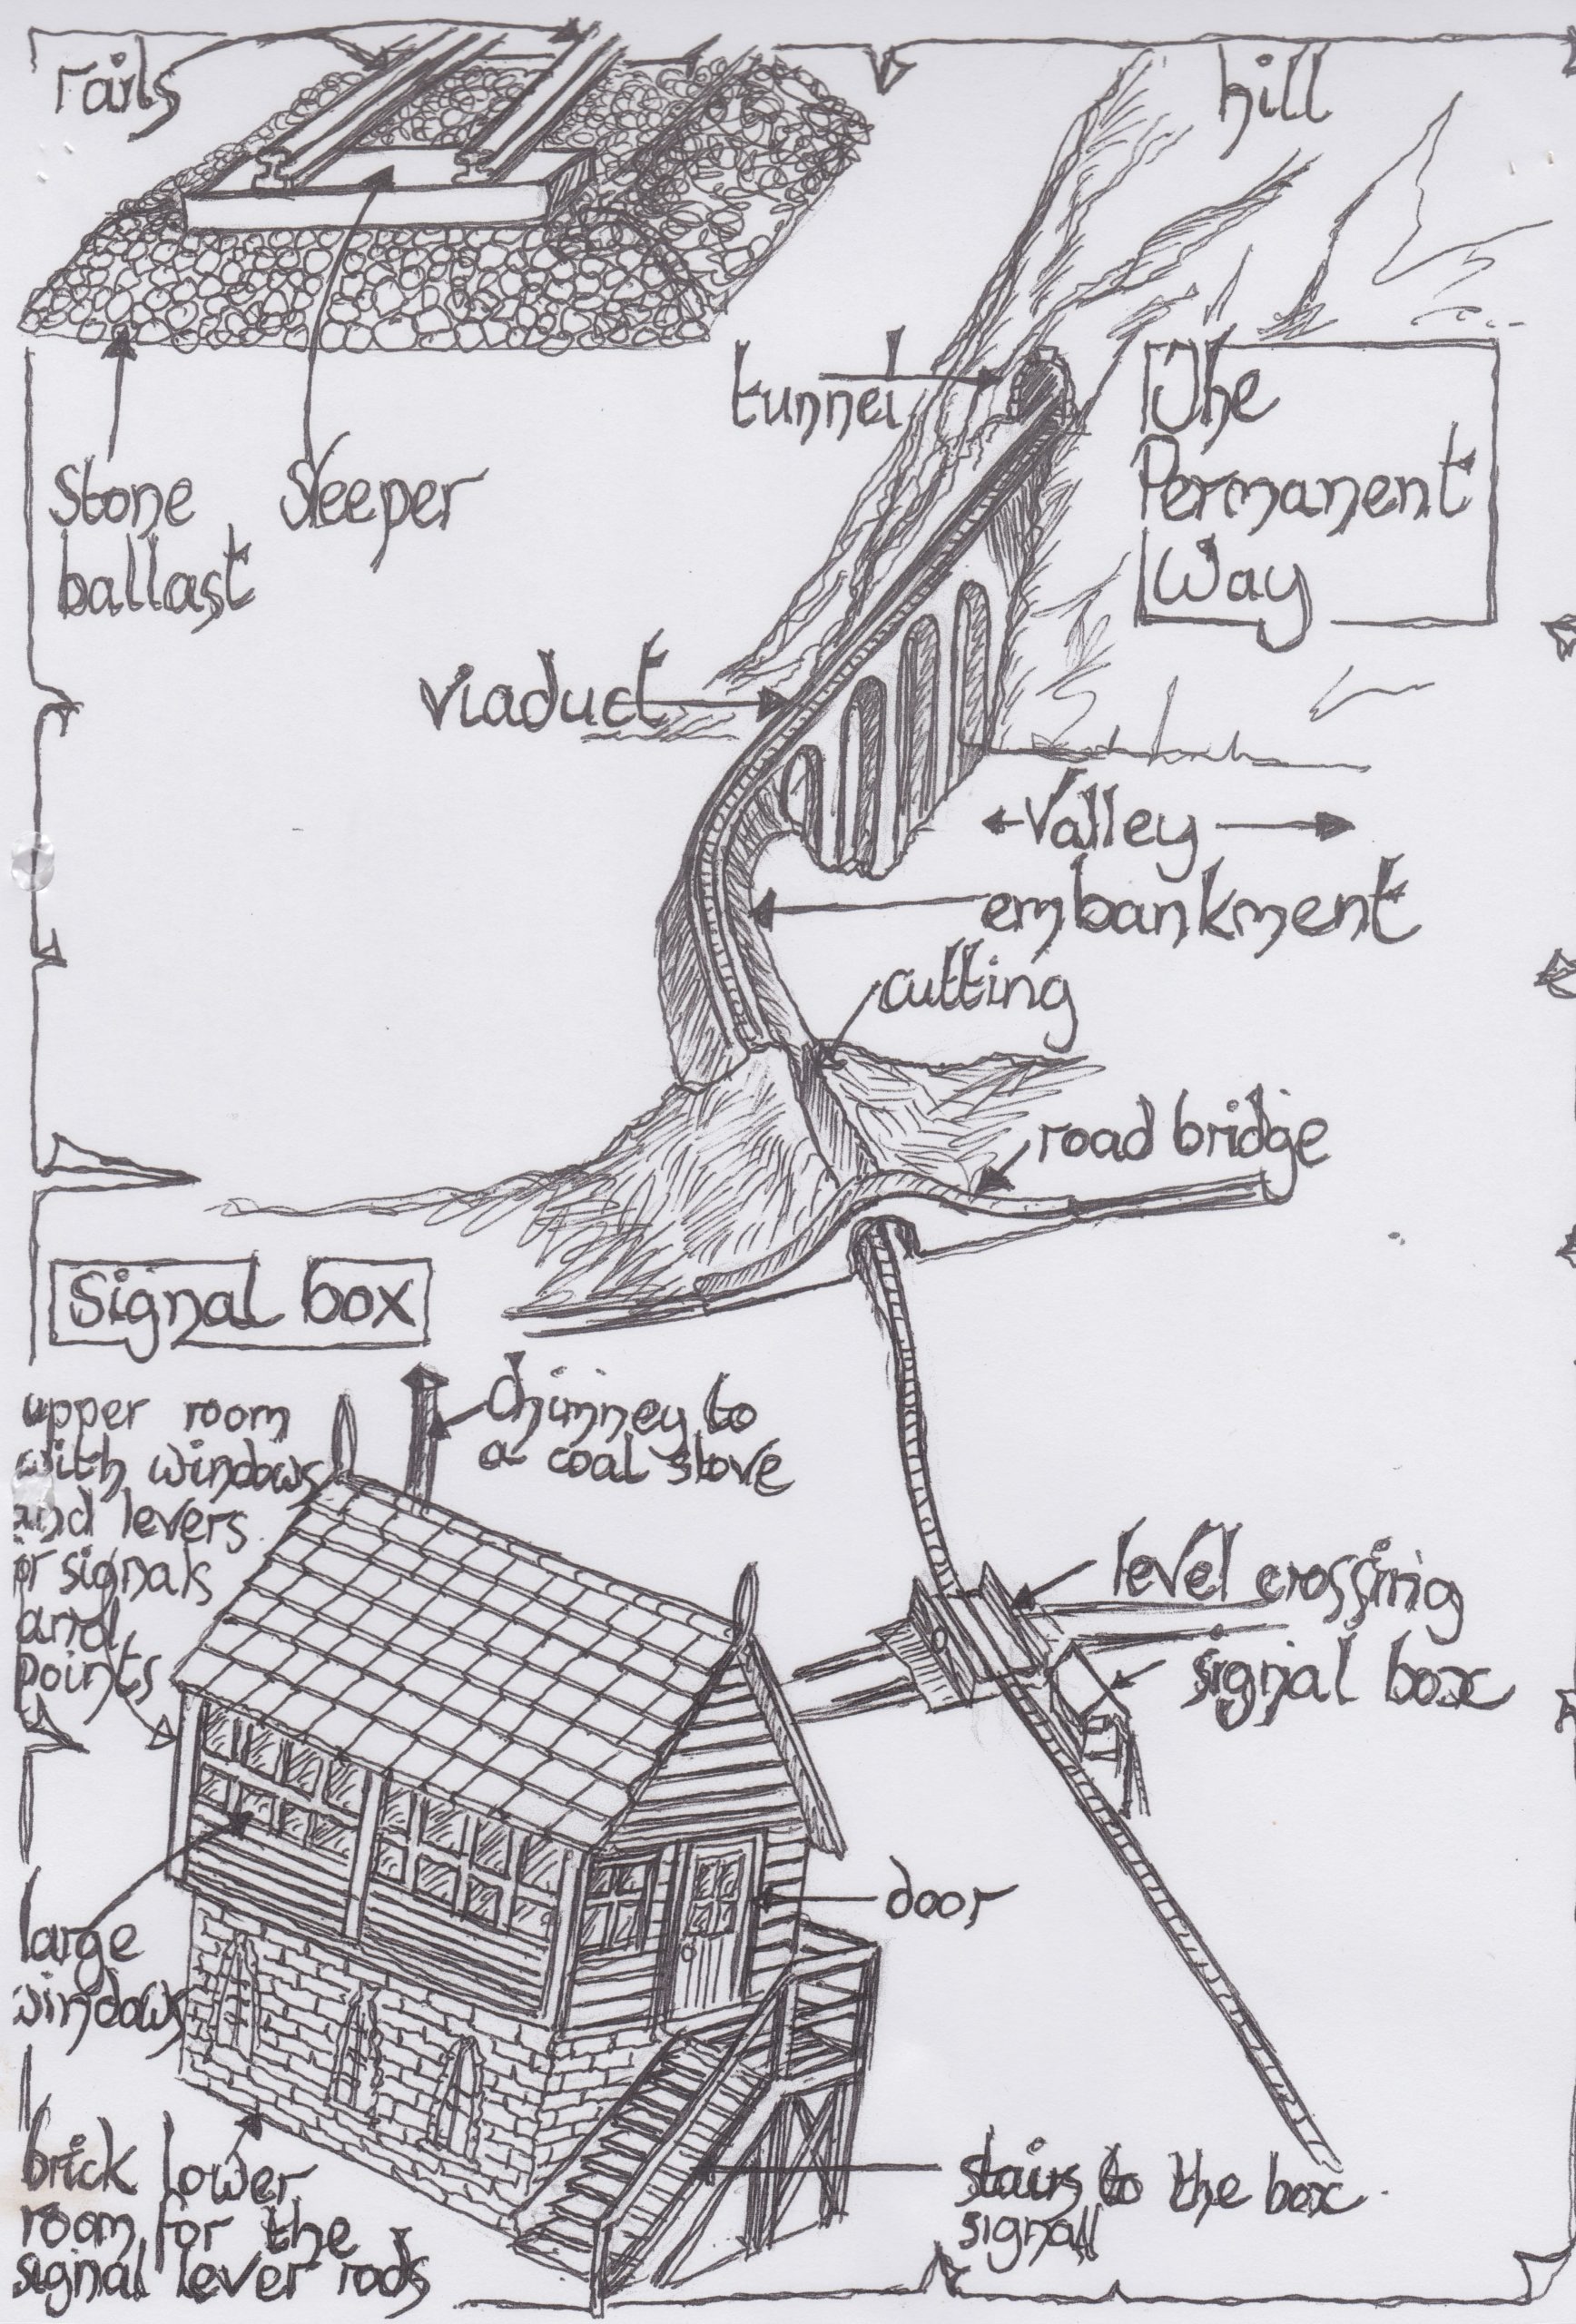 rails
hill
tunnel
The
Permanent
Way
stone
ballast
sleeper
viaduct
valley
embankment
cutting
road bridge
Signal box
upper room
with windows
and levers
or signals
and
points
chimney to
a coal stove
level crossing
signal box
large
windows
door
brick lower
room for the
signal lever rods
stairs to the box
signal